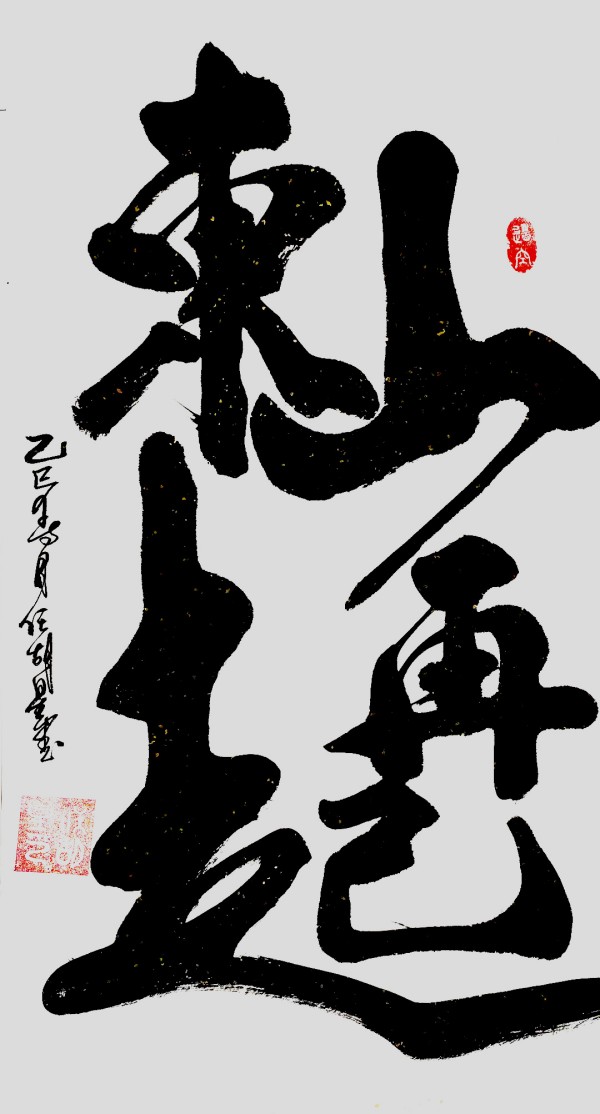 東山再起
乙巳年月任胡星書